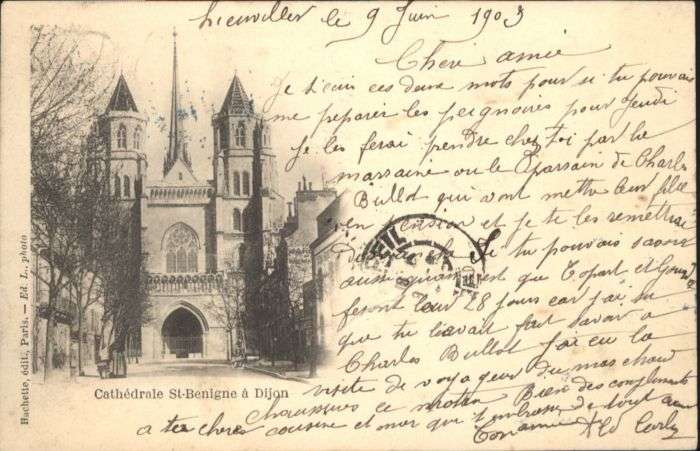 le 9 Juin 1903
Chere amie
Je t'ecris ces deux mots pour si tu pouvais
me preparer les peignoires pour Jeudi
Je les ferai prendre chez toi par la
marraine ou le Parrain de Charles
Bullot qui vont mettre leur fille
en pension et je te les remettrai
si tu pouvais savoir
aussi quand est que Topart et
feront leur 28 jours car j'ai su
que tu l'avait fait savoir a
Charles Bullot j'ai eu la
visite de voyageur du marchand
chaussures ce matin Bien des compliments
a tes cheres cousine et moi que t'embrasse de tout
Ton amie
Cathédrale St-Benigne à Dijon
Hachette, édit., Paris. — Ed. L., photo